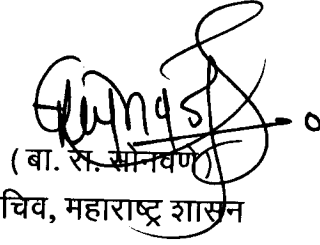 ( बा. रा. सोनवणे )
चिव, महाराष्ट्र शासन